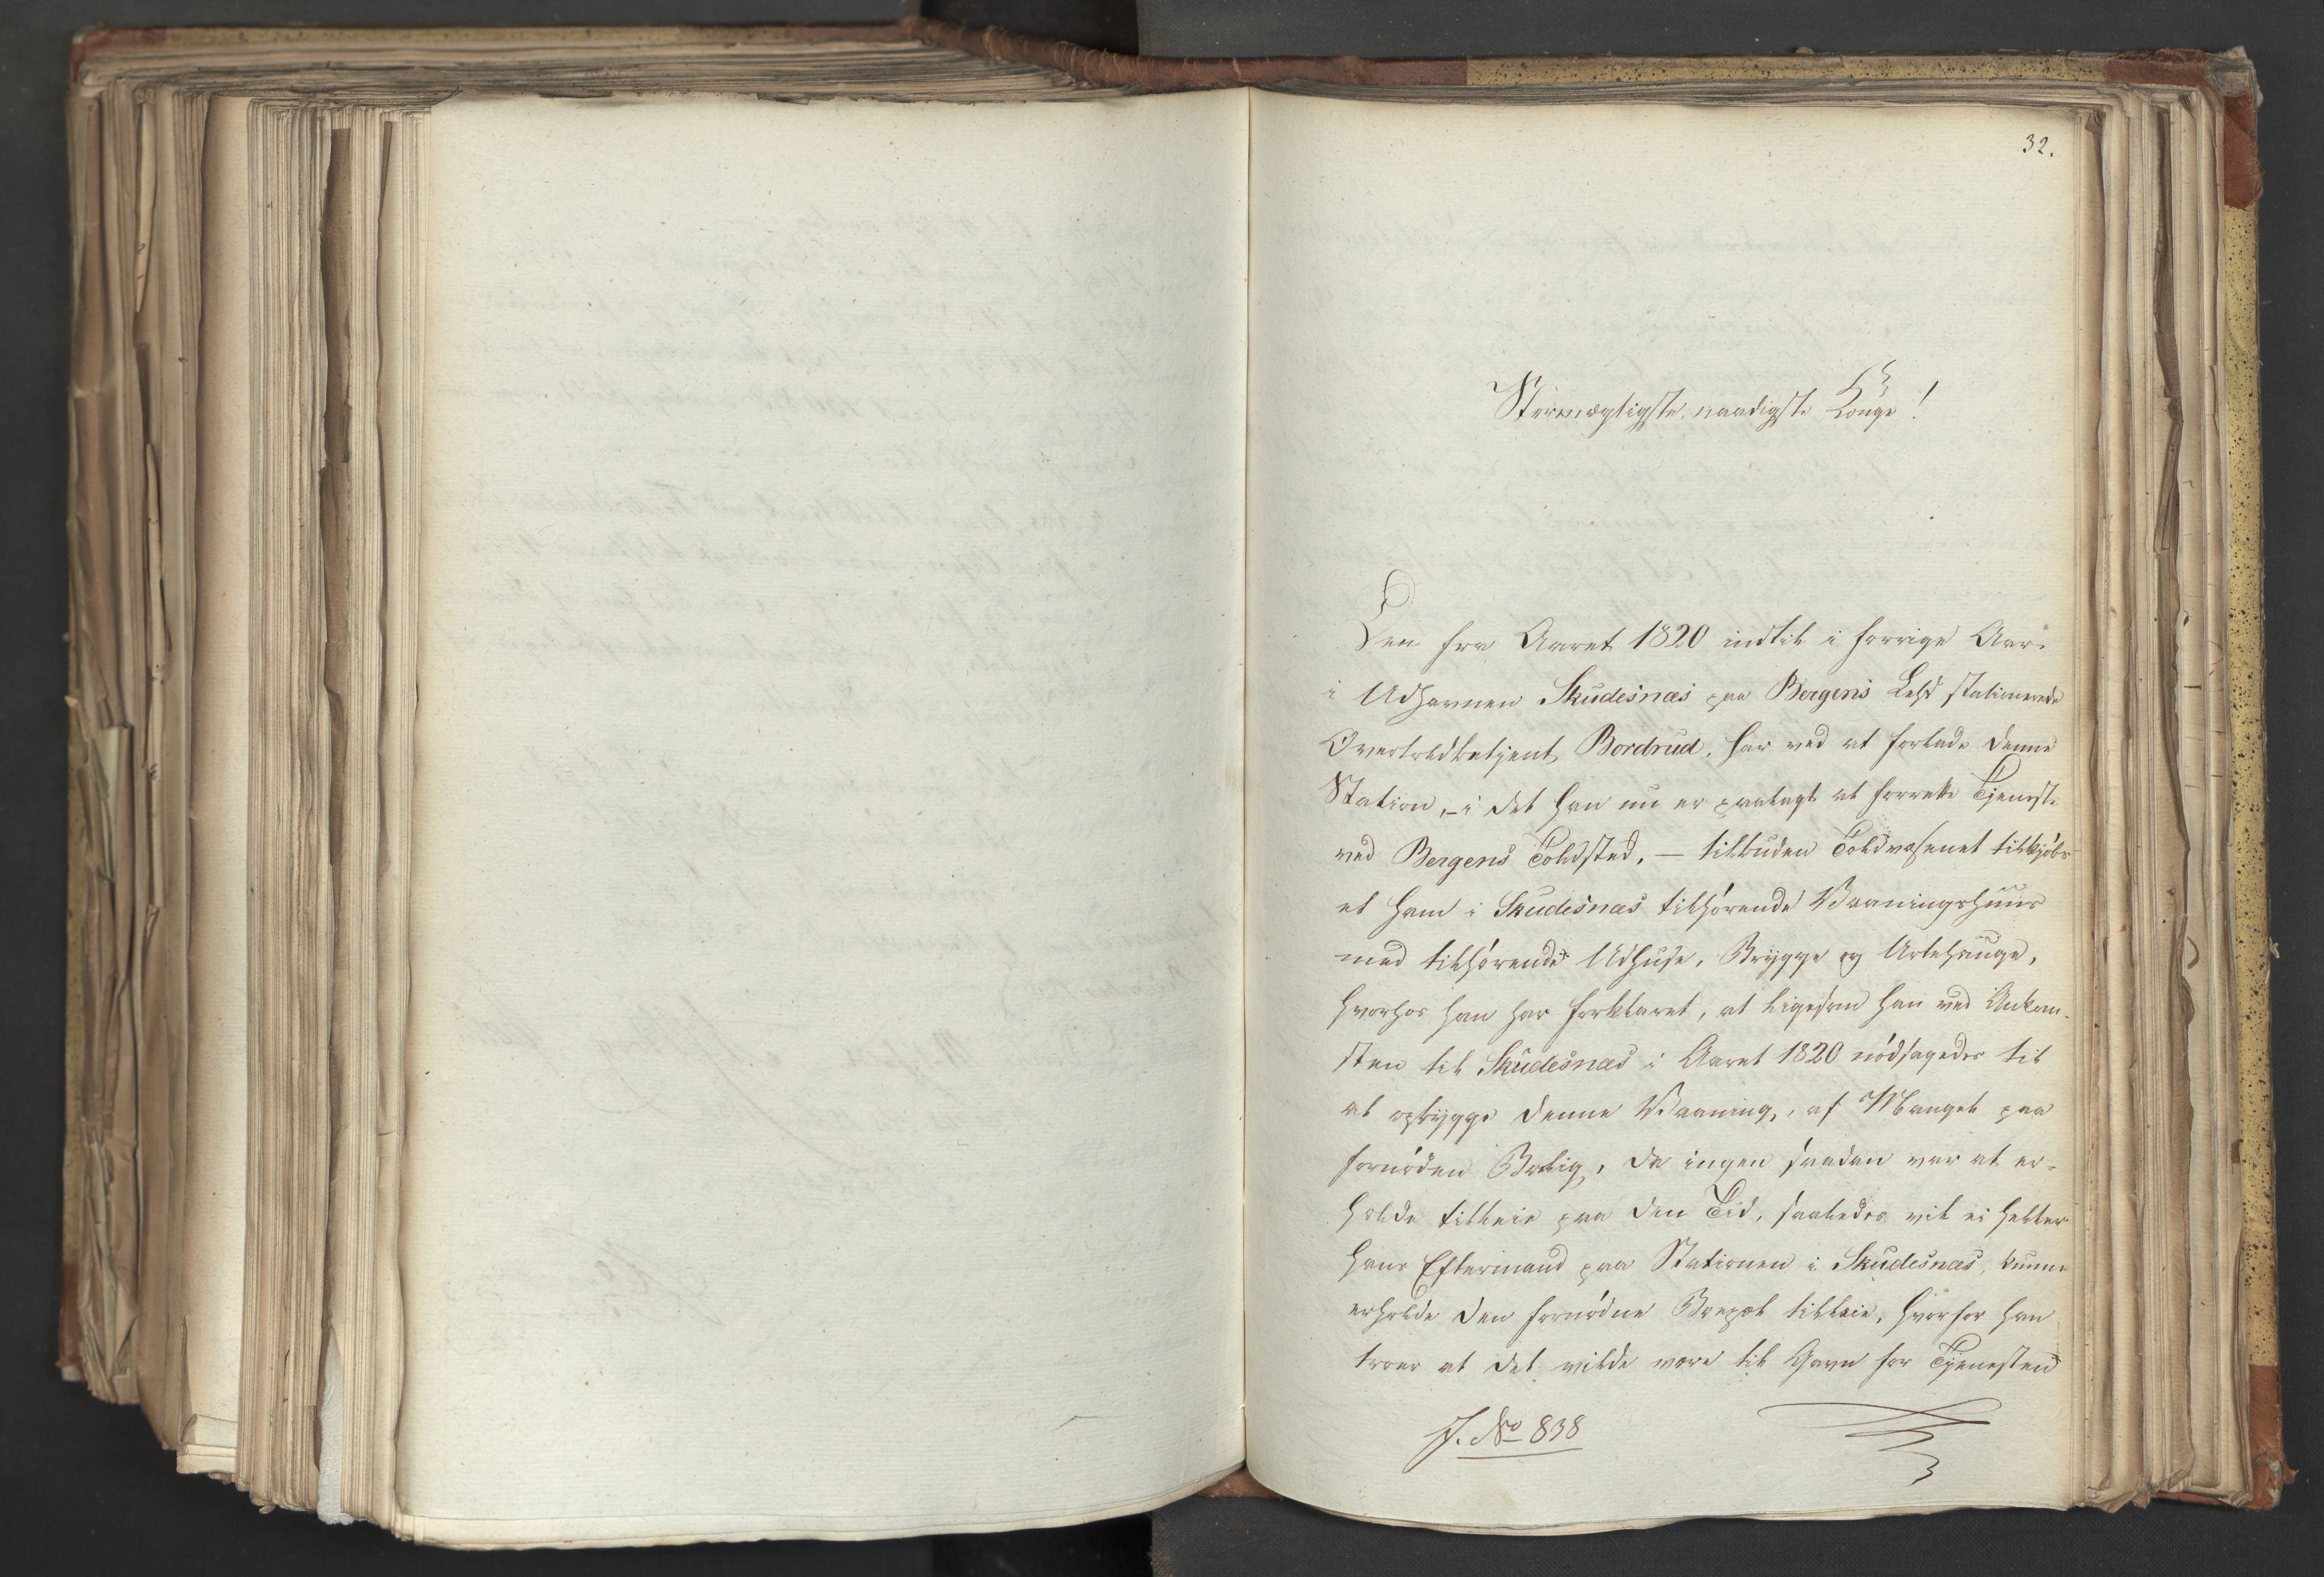 32.
Stormægtigste, naadigste Konge!
Den fra Aaret 1820 indtil i forrige Aar
i Udhavnen Skudesnæs paa Bergens Lehd stationerede
Overtoldbetjent Bordrud, har ved at forlade denne
Station, - i det han nu er paalagt at forrette Tjeneste
ved Bergens Toldsted, - tilbuden Toldvæsenet tilkjøbs
et ham i Skudesnæs tilhørende Vaaningshuus
med tilhørende Udhuse, Brygge og Urtehauge,
hvorhos han har forklaret, at ligesom han ved Ankom-
sten til Skudesnæs i Aaret 1820 nødsagedes til
at opbygge denne Vaaning, af Mangel paa
fornøden Bolig, da ingen saadan var at er-
holde tilleie paa den Tid, saaledes vil ei heller
hans Eftermand paa Stationen i Skudesnæs, kunne
erholde den fornødne Boepæl tilleie, hvorfor han
troer at det vilde være til Gavn for Tjenesten
J. No 838